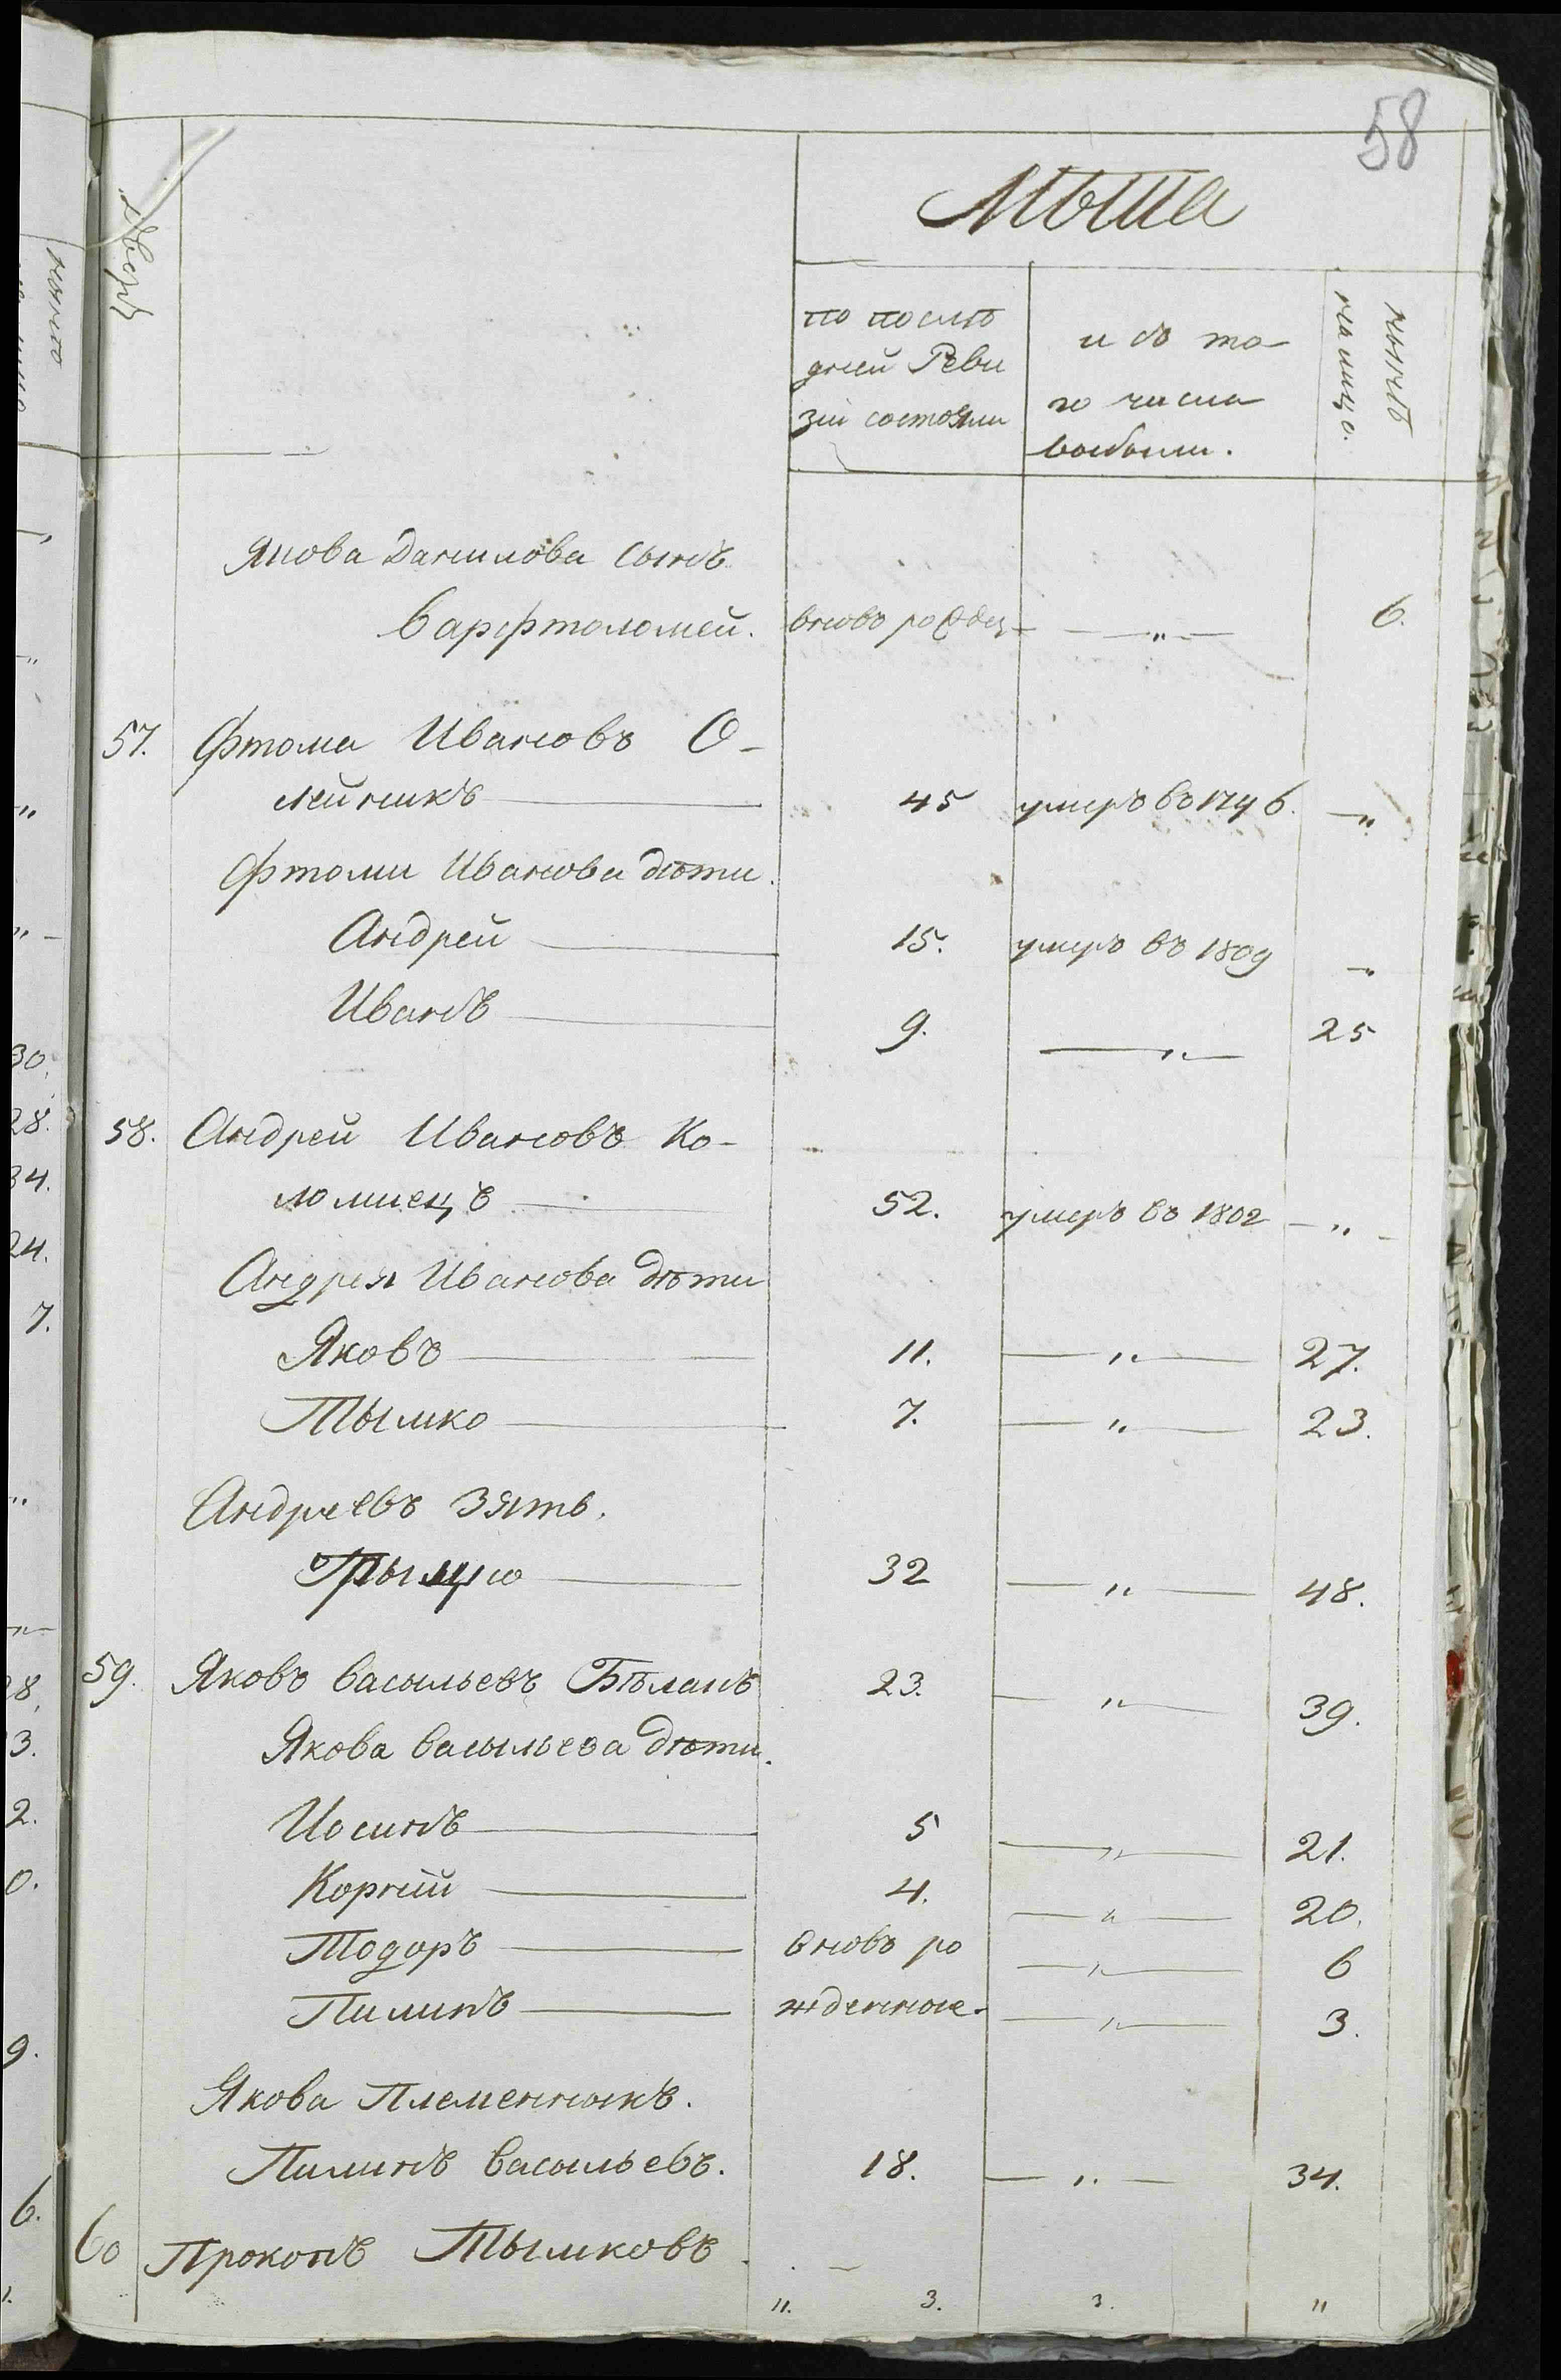 58
Лѣта
дворъ
по послѣ
дней Реви
зіи состояли
изъ то-
го числа
выбыли.
нынѣ
на лицо.
Якова Данилова сынъ
Варфтоломей. вновь рожден — „ — 6.
57. Фтома Ивановъ О-
лейникъ — 45 умеръ въ 1796. — „
Фтомы Иванова дѣти.
Андрей — 15. умеръ въ 1809 — „
Иванъ — 9. — „ — 25
58. Андрей Ивановъ Ко-
ломиецъ — 52. умеръ въ 1802 — „ —
Андрея Иванова дѣти
Яковъ — 11. — „ — 27.
Тымко — 7. — „ — 23.
Андреевъ зять.
Грыцко — 32 — „ — 48.
59. Яковъ Васыльевъ Бѣланъ 23. — „ — 39.
Якова Васыльева дѣти.
Иосипъ — 5 — „ — 21.
Корній — 4. — „ — 20.
Тодоръ — вновь ро — „ — 6
Пилипъ — жденные. — „ — 3.
Якова Племенныкъ.
Пилипъ Васыльевъ. 18. — „ — 34.
60 Прокопъ Тымковъ
„. 3. 3. „